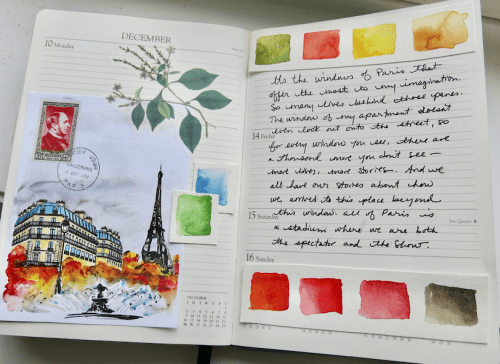 10 Monday
DECEMBER
PARIS
DECEMBER
It's the windows of Paris that
offer the most to my imagination.
So many lives behind those panes.
The window of my apartment doesn't
even look out onto the street, so
14 Friday
for every window you see, there are
a thousand more you don't see —
more lives, more stories. And we
all have our stories about how
we arrived to this place beyond
15 Saturday
this window. All of Paris is
a stadium where we are both
the spectator and the show.
16 Sunday